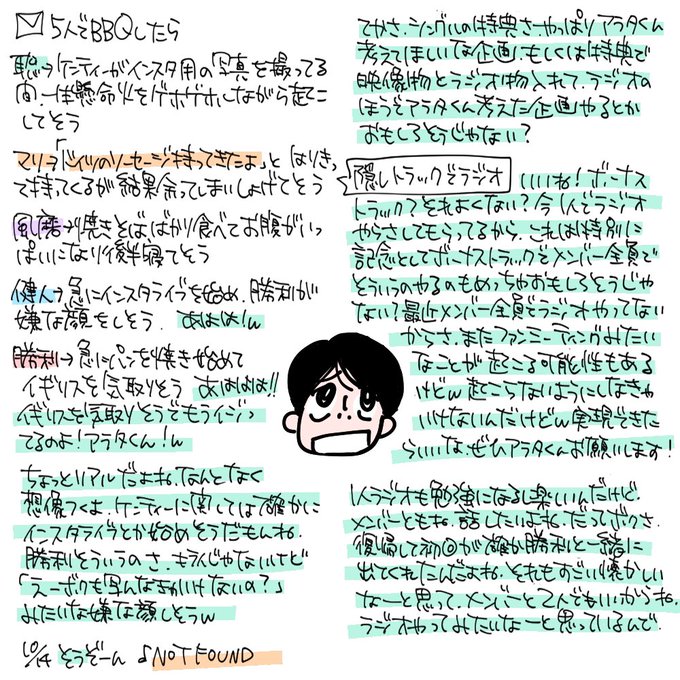 5人でBBQしたら
聡→ケンティーがインスタ用の写真を撮ってる
間、一生懸命火をゲホゲホしながら起こ
してそう
マリ→「ドイツのソーセージ持ってきたよ」とはりきっ
て持ってくるが結果余ってしまいしょげてそう
風磨→焼きそばばかり食べてお腹がいっ
ぱいになり後半寝てそう
健人→急にインスタライブを始め、勝利が
嫌な顔をしそう。あははは!w
勝利→急にパンを焼き始めて
イギリスを気取りそう あははは!!
イギリスを気取りそうでもうイジっ
てるのよ!アラタくん!w
ちょっとリアルだよね。なんとなく
想像つくよ。ケンティーに関しては確かに
インスタライブとか始めそうだもんね。
勝利もそういうのさ、キライじゃないけど
「えーボクも写んなきゃいけないの?」
みたいな嫌な顔しそうw
10/14 とうぞーん ♪NOT FOUND
てかさ、シングルの特典さ、やっぱりアラタくん
考えてほしいな企画。もしくは特典で
映像物とラジオ物入れて、ラジオの
ほうでアラタくん考えた企画やるとか
おもしろそうじゃない?
隠しトラックでラジオ
いいね!ボーナス
トラック?それよくない?今1人でラジオ
やらさしてもらってるから、これは特別に
記念としてボーナストラックでメンバー全員で
どういうのやるのもめっちゃおもしろそうじゃ
ない?最近メンバー全員でラジオやってない
からさ、またファンミーティングみたい
なことが起こる可能性もある
けどw起こらないようにしなきゃ
いけないんだけどw実現できた
らいいな、ぜひアラタくんお願いします!
1人ラジオも勉強になるし楽しいんだけど、
メンバーともね、話したいよね。だってボクさ、
復帰して初回が確か勝利と一緒に
出てくれたんだよね。それもすごい懐かしい
なーと思って、メンバーと2人でもいいからね、
ラジオやってみたいなーと思っているんで。